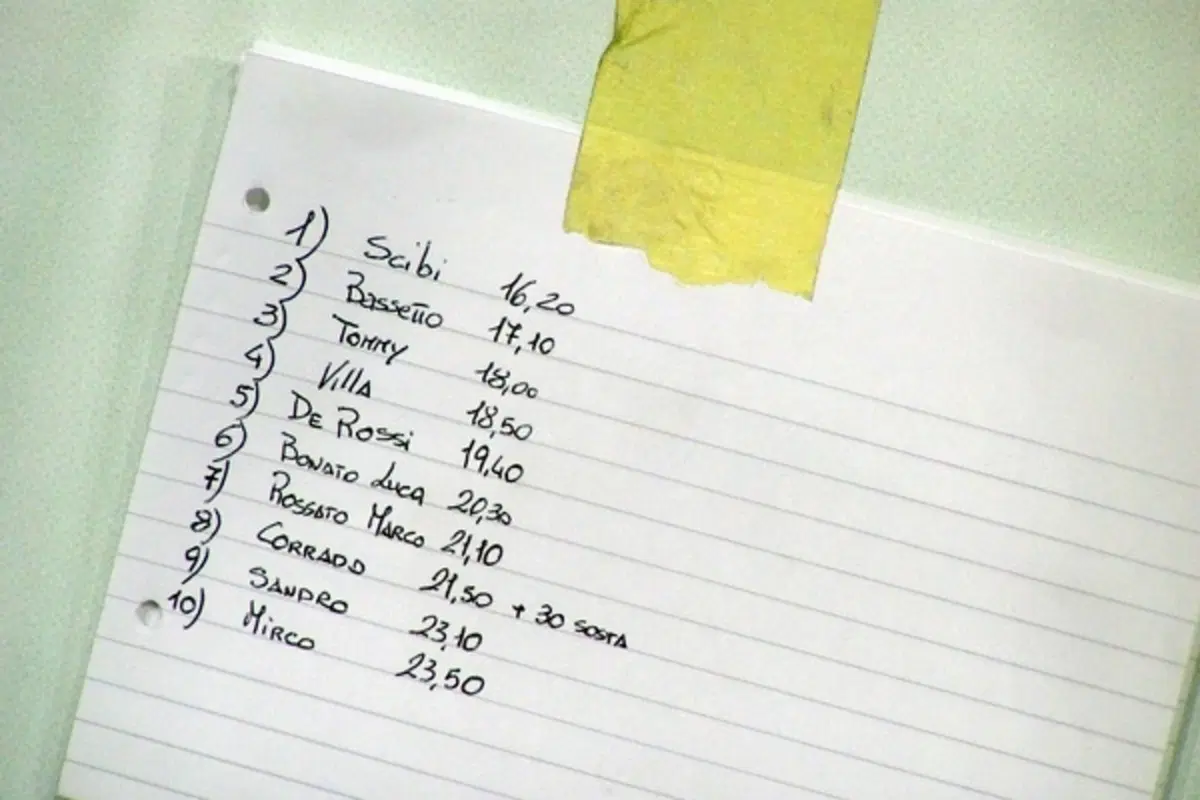 1) Scibi 16,20
2) Bassetto 17,10
3) Tommy 18,00
4) Villa 18,50
5) De Rossi 19,40
6) Bonato Luca 20,30
7) Rossato Marco 21,10
8) Corrado 21,50 + 30 sosta
9) Sandro 23,10
10) Mirco 23,50